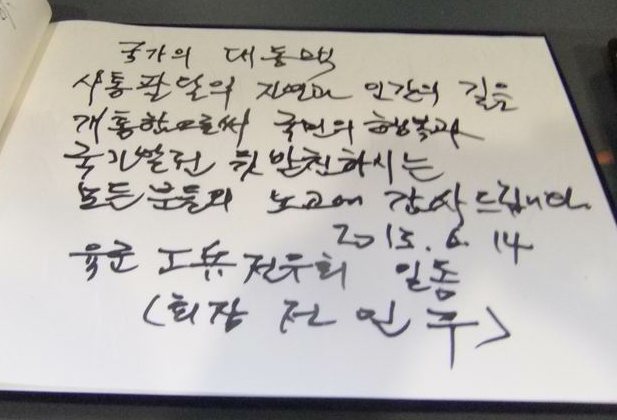 국가의 대동맥
사통팔달의 자연과 인간의 길을
개통함으로써 국민의 행복과
국가발전 뒷받친하시는
모든분들의 노고에 감사드립니다.
2013. 6. 14
육군 공병 전우회 일동
(회장 전 인 구)